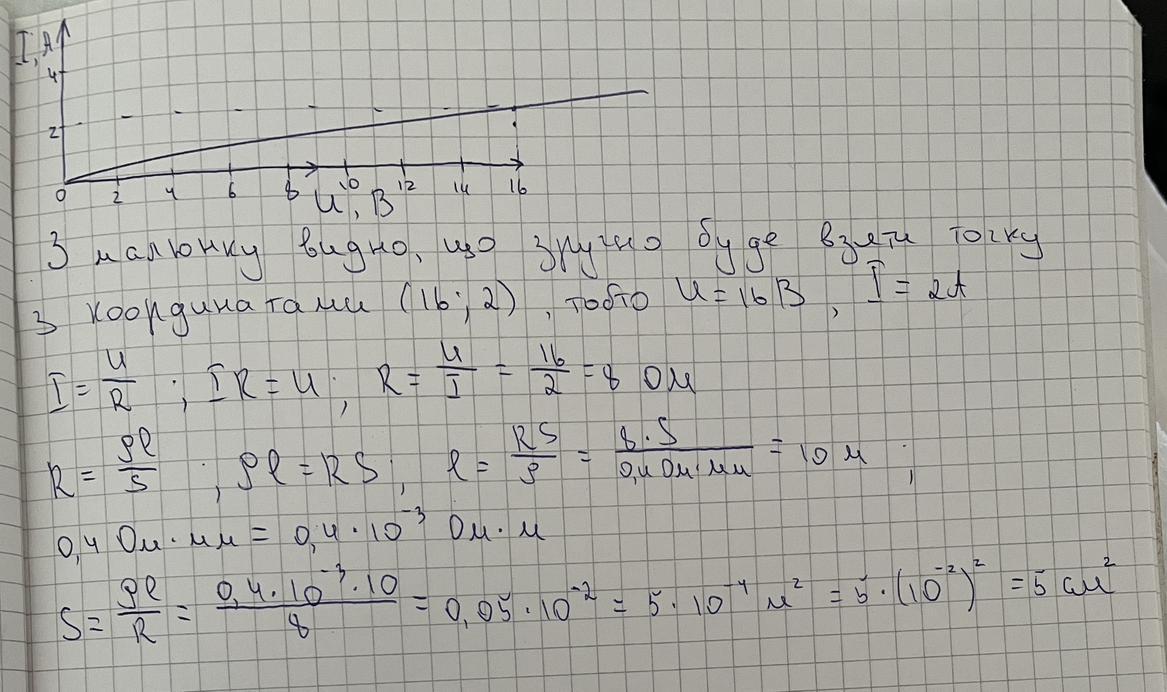 I, A
4
2
0 2 4 6 8 10 12 14 16
U, B
З малюнку видно, що зручно буде взяти точку
з координатами (16; 2), тобто U = 16 B, I = 2A
I = U/R ; IR = U; R = U/I = 16/2 = 8 Ом
R = ρl/S ; ρl = RS; l = RS/ρ = 8·S/0,4 Ом·мм = 10 м ;
0,4 Ом·мм = 0,4·10⁻³ Ом·м
S = ρl/R = 0,4·10⁻³·10/8 = 0,05·10⁻² = 5·10⁻⁴ м² = 5·(10⁻²)² = 5 см²